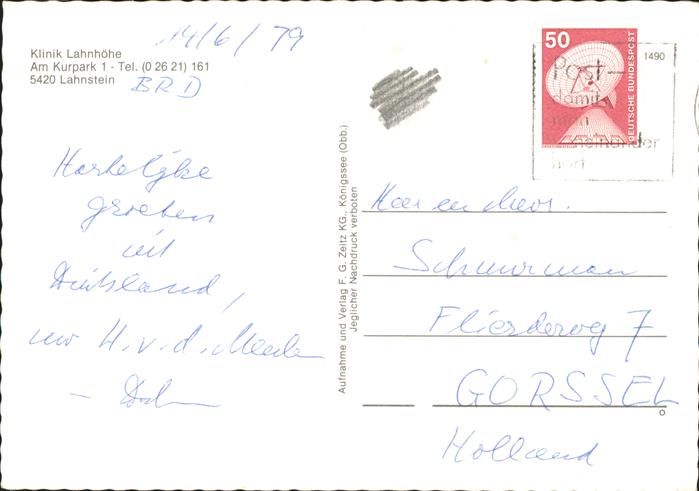 14/6/79
Klinik Lahnhöhe
Am Kurpark 1 - Tel. (0 26 21) 161
5420 Lahnstein
BRD
Hartelijke
groeten
uit
Duitsland,
uw H. v. d. Meule
50
DEUTSCHE BUNDESPOST
1490
Post-
damit
man
voneinander
hört
Aufnahme und Verlag F. G. Zeitz KG., Königssee (Obb.)
Jeglicher Nachdruck verboten
Schuurman
Flierderweg 7
GORSSEL
Holland